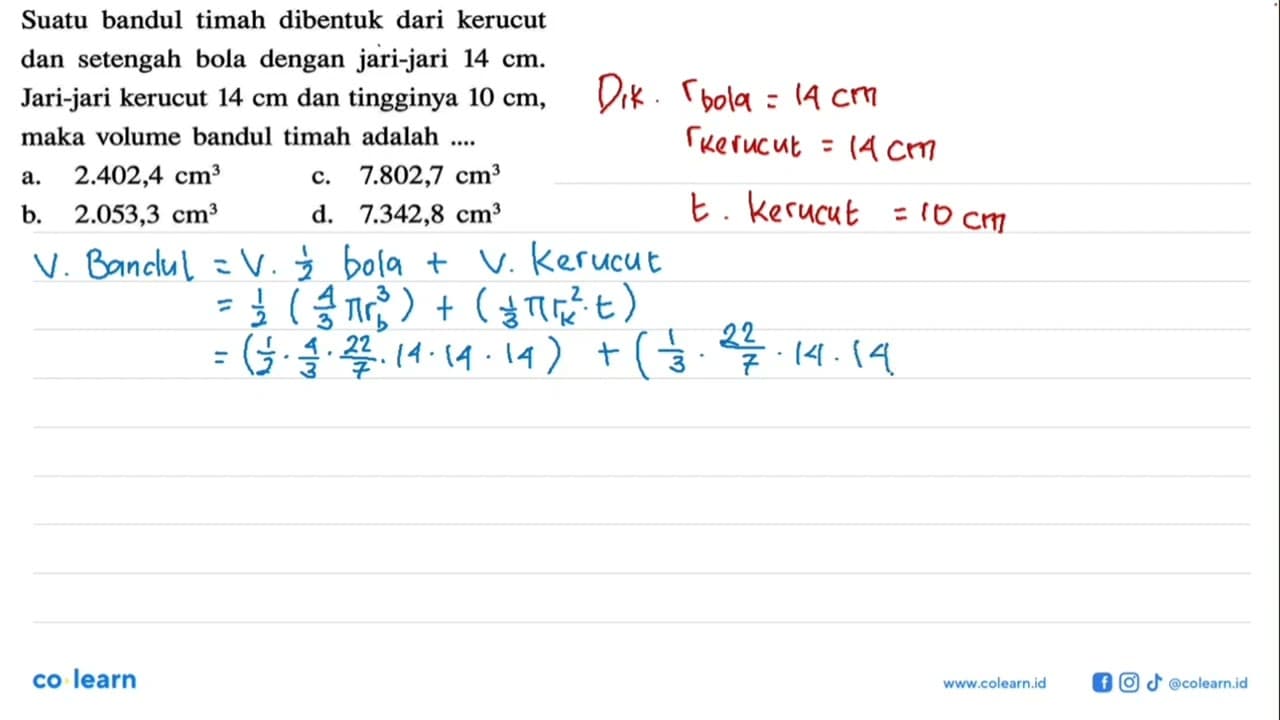 Suatu bandul timah dibentuk dari kerucut
dan setengah bola dengan jari-jari 14 cm.
Jari-jari kerucut 14 cm dan tingginya 10 cm,
maka volume bandul timah adalah ....
a. 2.402,4 cm³ c. 7.802,7 cm³
b. 2.053,3 cm³ d. 7.342,8 cm³
Dik. r bola = 14 cm
r kerucut = 14 cm
t. kerucut = 10 cm
V. Bandul = V. 1/2 bola + V. Kerucut
= 1/2 (4/3 πr_b³) + (1/3 πr_k². t)
= (1/2 · 4/3 · 22/7 · 14 · 14 · 14) + (1/3 · 22/7 · 14 · 14
co learn
www.colearn.id
@colearn.id